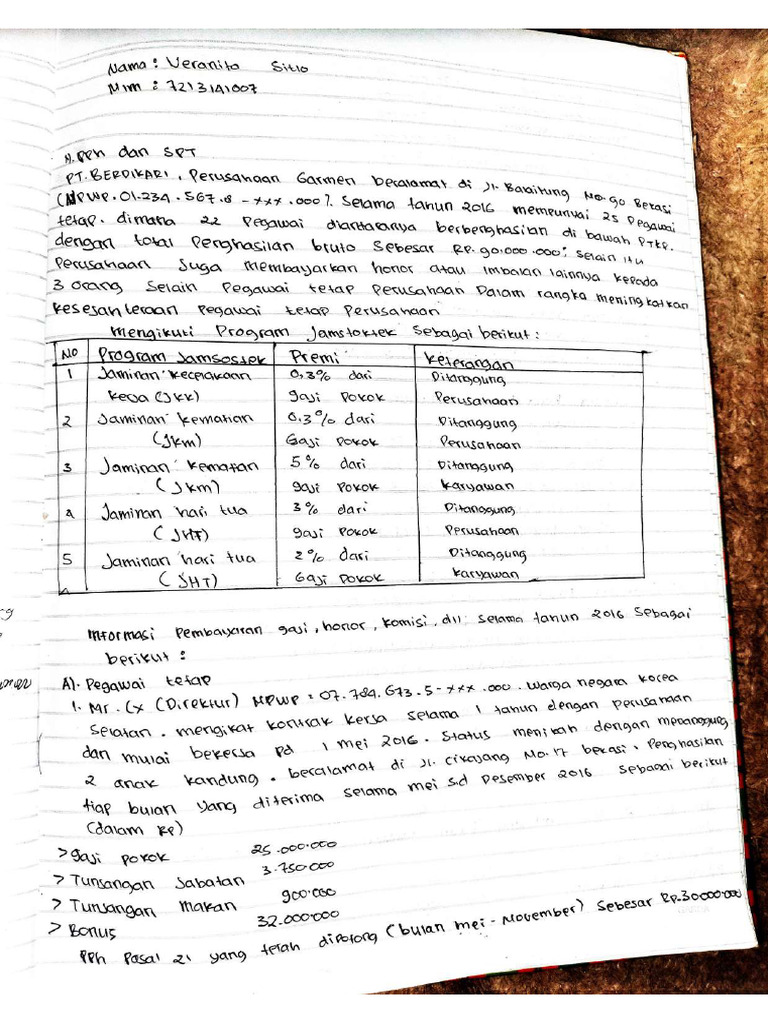 Nama : Veranita Sitio
Nim : 7213141007
A. PPh dan SPT
PT. BERDIKARI, Perusahaan Garmen beralamat di Jl. Balaitung No.90 Bekasi
(NPWP. 01.234.567.8-xxx.000). Selama tahun 2016 mempunyai 25 Pegawai
tetap. dimana 22 Pegawai diantaranya berpenghasilan di bawah PTKP.
dengan total Penghasilan bruto Sebesar RP. 90.000.000; Selain itu
Perusahaan Juga membayarkan honor atau Imbalan lainnya kepada
3 orang Selain Pegawai tetap Perusahaan Dalam rangka meningkatkan
kesejahteraan Pegawai tetap Perusahaan
mengikuti Program Jamstoktek Sebagai berikut :
NO Program Jamsostek Premi Keterangan
1 Jaminan kecelakaan 0,3% dari Ditanggung
kerja (JKK) gaji Pokok Perusahaan
2 Jaminan kematian 0,3% dari Ditanggung
(Jkm) Gaji Pokok Perusahaan
3 Jaminan kematan 5% dari Ditanggung
(Jkm) gaji Pokok Karyawan
4 Jaminan hari tua 3% dari Ditanggung
(JHT) gaji Pokok Perusahaan
5 Jaminan hari tua 2% dari Ditanggung
(JHT) Gaji Pokok Karyawan
Informasi Pembayaran gaji, honor, komisi, dll selama tahun 2016 Sebagai
berikut :
A). Pegawai tetap
1. Mr. Cx (Direktur) NPWP = 07.784.673.5-xxx.000. Warga negara Korea
Selatan. mengikat kontrak Kerja selama 1 tahun dengan perusahaan
dan mulai bekerja pd 1 mei 2016. Status menikah dengan menanggung
2 anak kandung. beralamat di Jl. Cikajang No.17 bekasi. Penghasilan
tiap bulan yang diterima selama mei s.d Desember 2016 sebagai berikut
(dalam RP)
> gaji Pokok 25.000.000
> Tunjangan Jabatan 3.750.000
> Tunjangan Makan 900.000
> Bonus 32.000.000
PPh Pasal 21 yang telah dipotong (bulan mei - November) Sebesar Rp.30.000.000